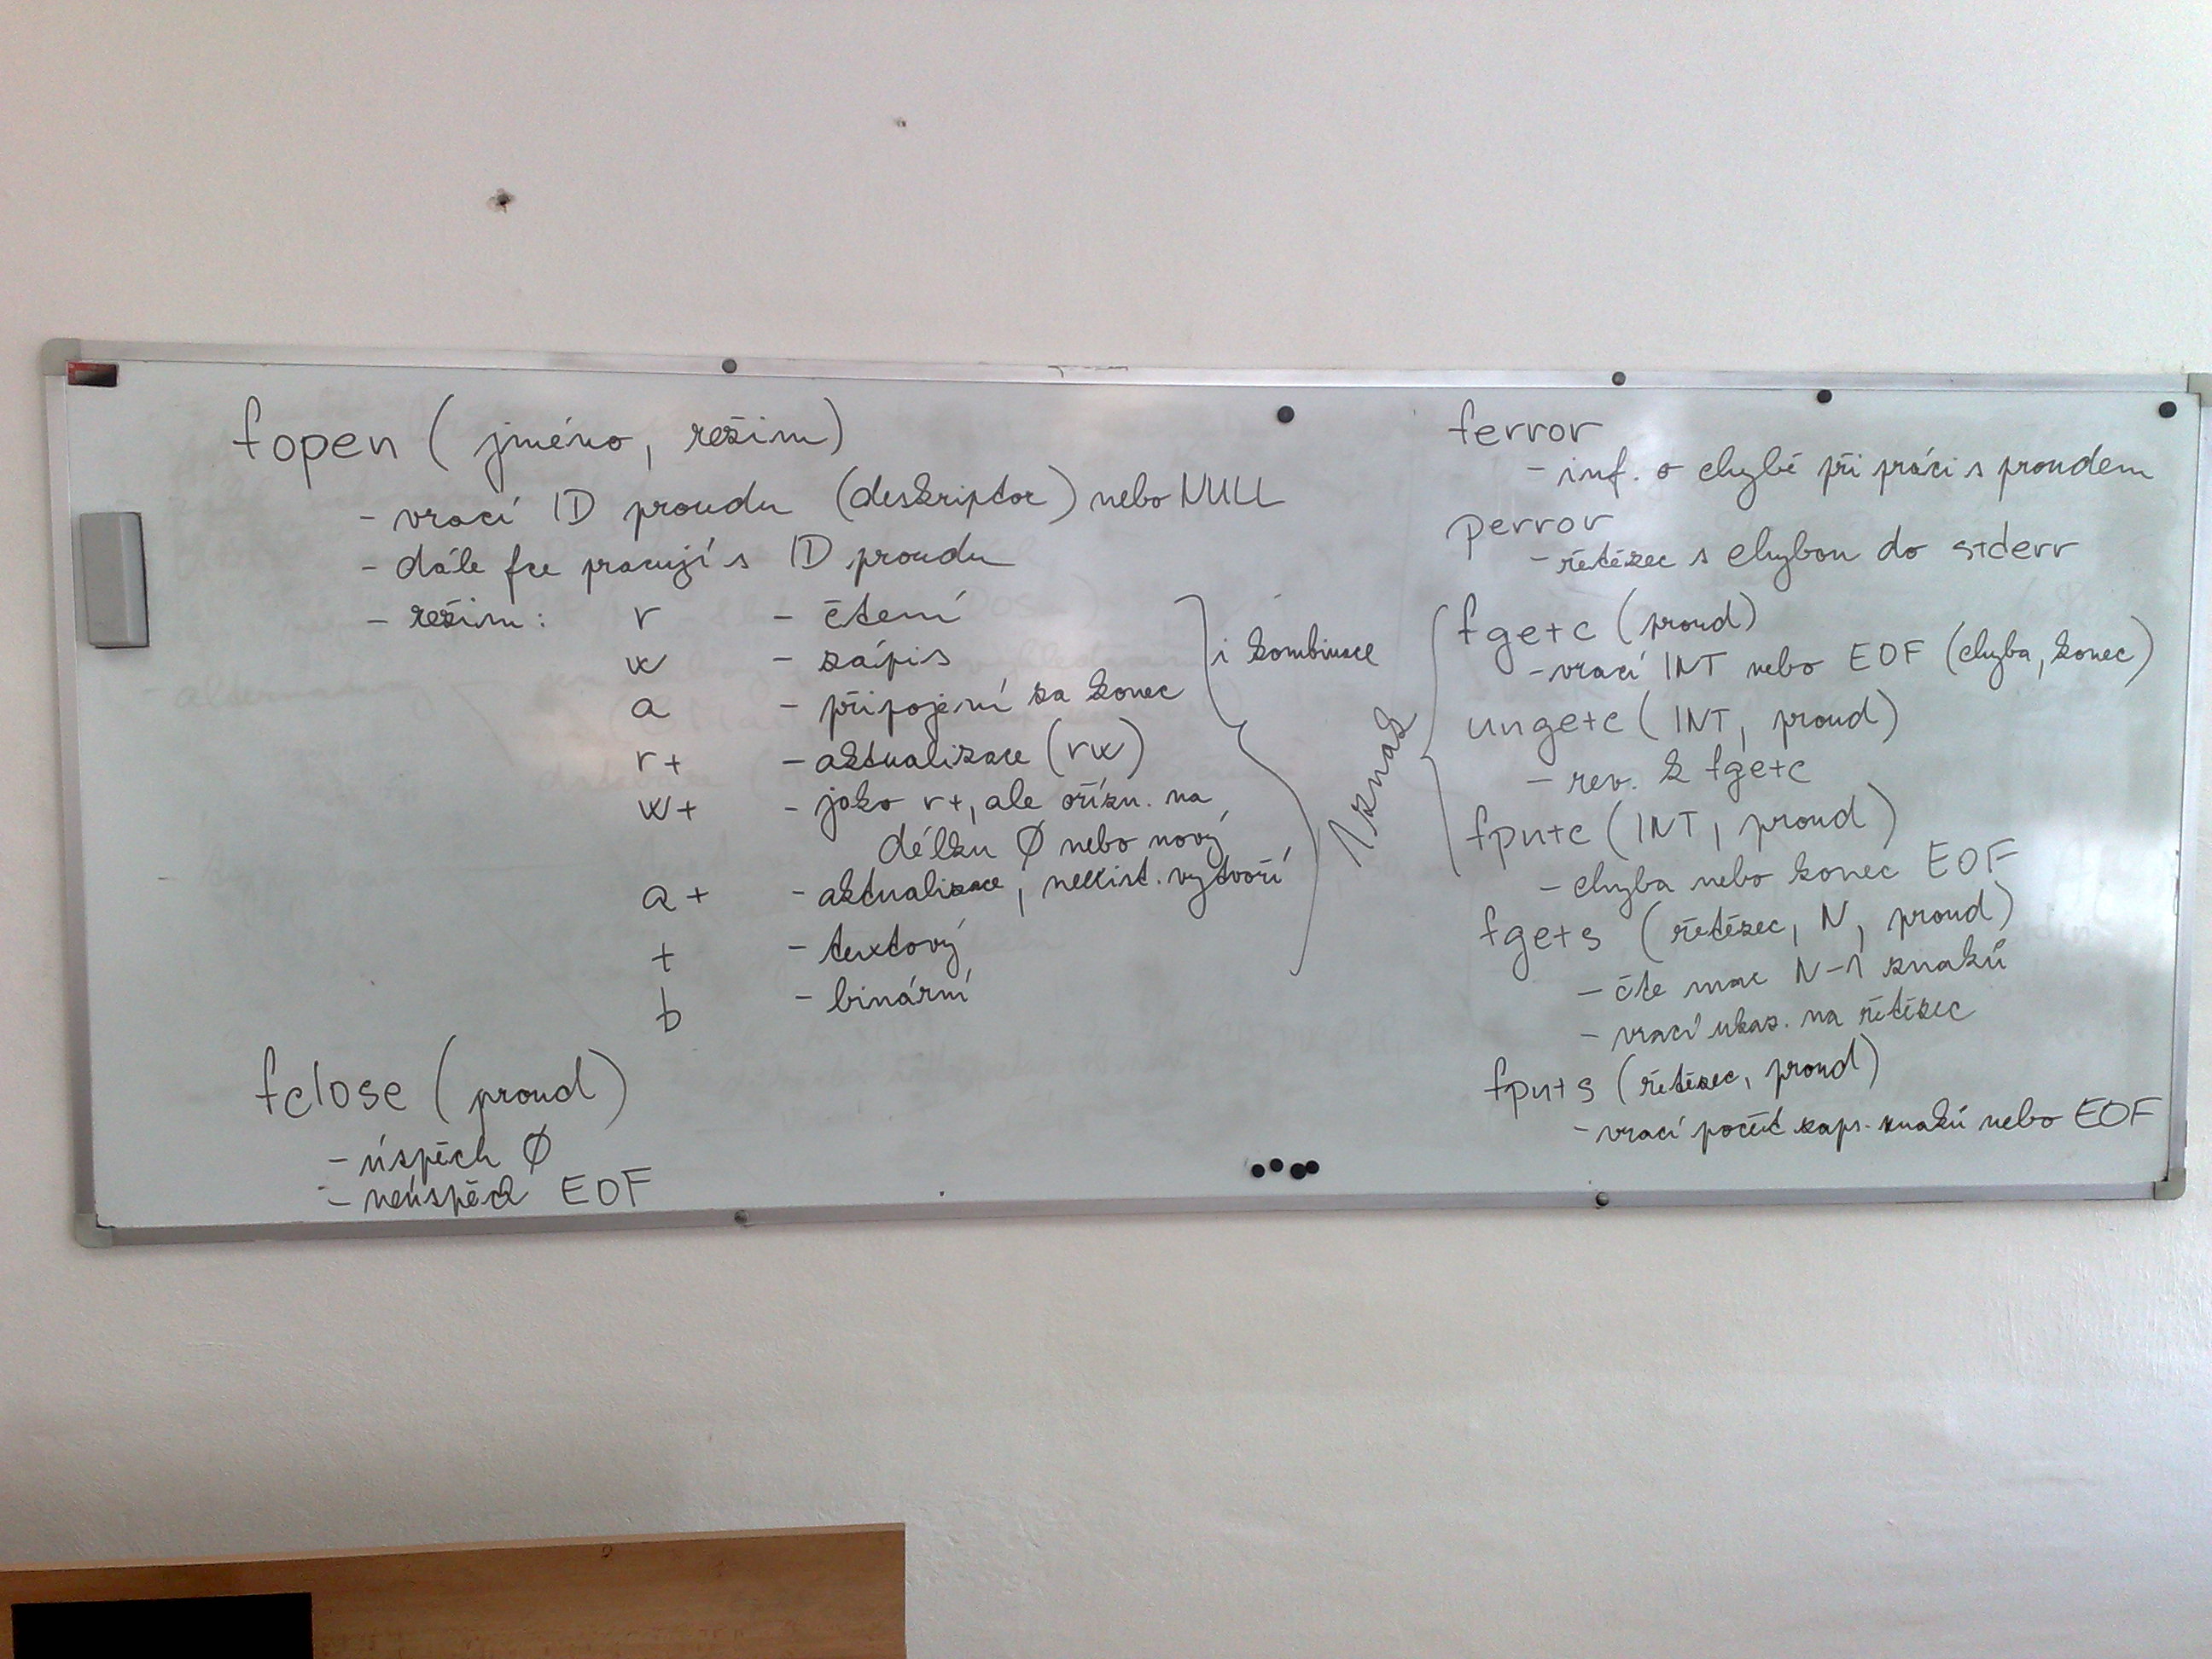 fopen ( jméno, režim)
- vrací ID proudu (deskriptor) nebo NULL
- dále fce pracují s ID proudu
- režim: r - čtení
w - zápis
a - připojení za konec
i kombinace
r+ - aktualizace (rw)
w+ - jako r+, ale ořízn. na
délku Ø nebo nový
a+ - aktualizace, neexist. vytvoří
t - textový
b - binární
fclose ( proud)
- úspěch Ø
- neúspěch EOF
ferror
- inf. o chybě při práci s proudem
perror
- řetězec s chybou do stderr
1 znak
fgetc (proud)
- vrací INT nebo EOF (chyba, konec)
ungetc ( INT, proud)
- rev. k fgetc
fputc ( INT, proud)
- chyba nebo konec EOF
fgets (řetězec, N, proud)
- čte max N-1 znaků
- vrací ukaz. na řetězec
fputs (řetězec, proud)
- vrací počet zaps. znaků nebo EOF